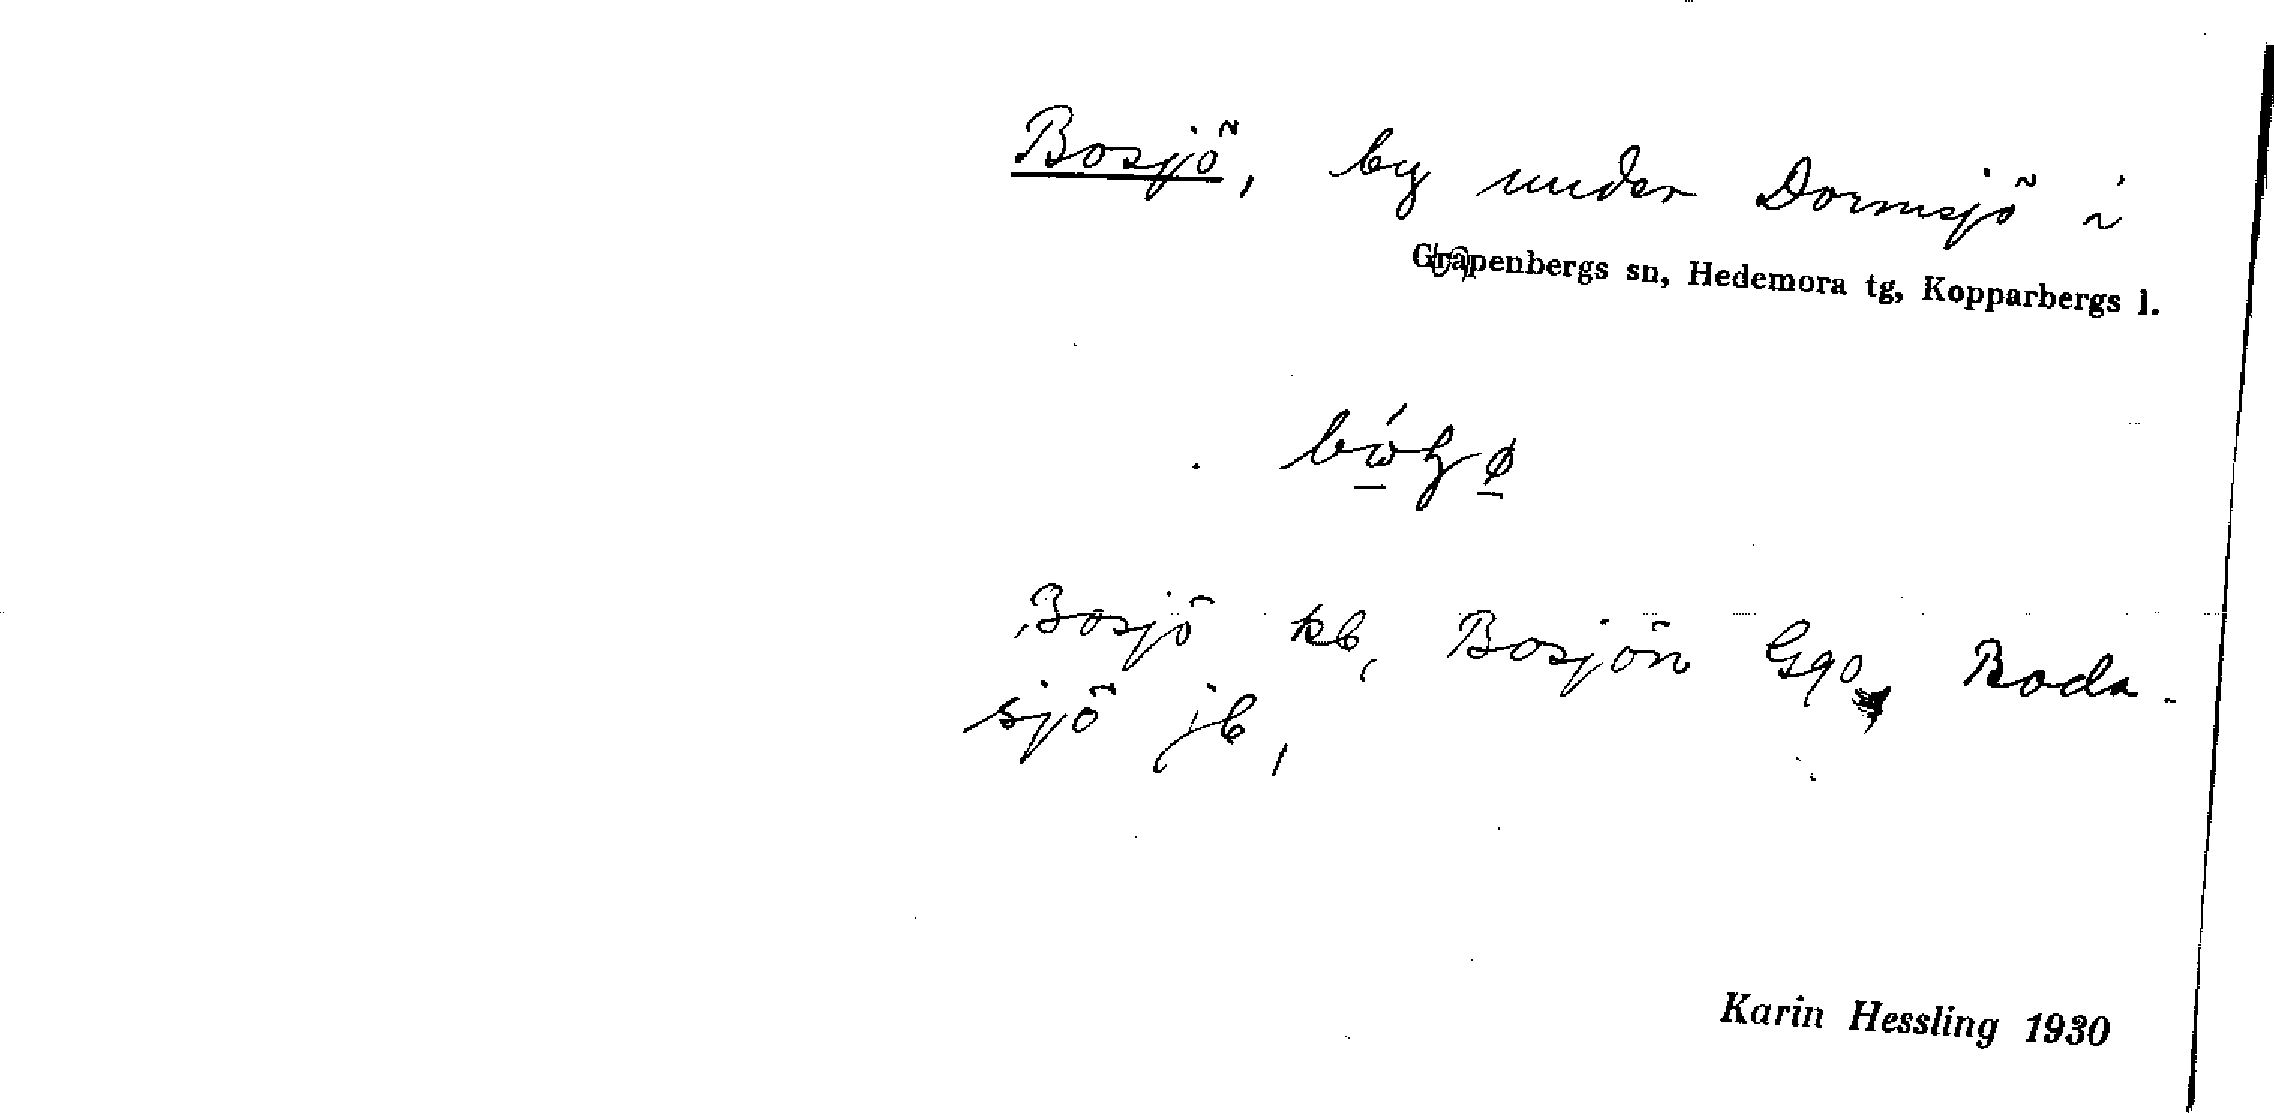 Bosjö, by under Dormsjö i
Garpenbergs sn, Hedemora tg, Kopparbergs l.
Bosjö kb, Bosjön G90, Boda-
sjö jb,
Karin Hessling 1930